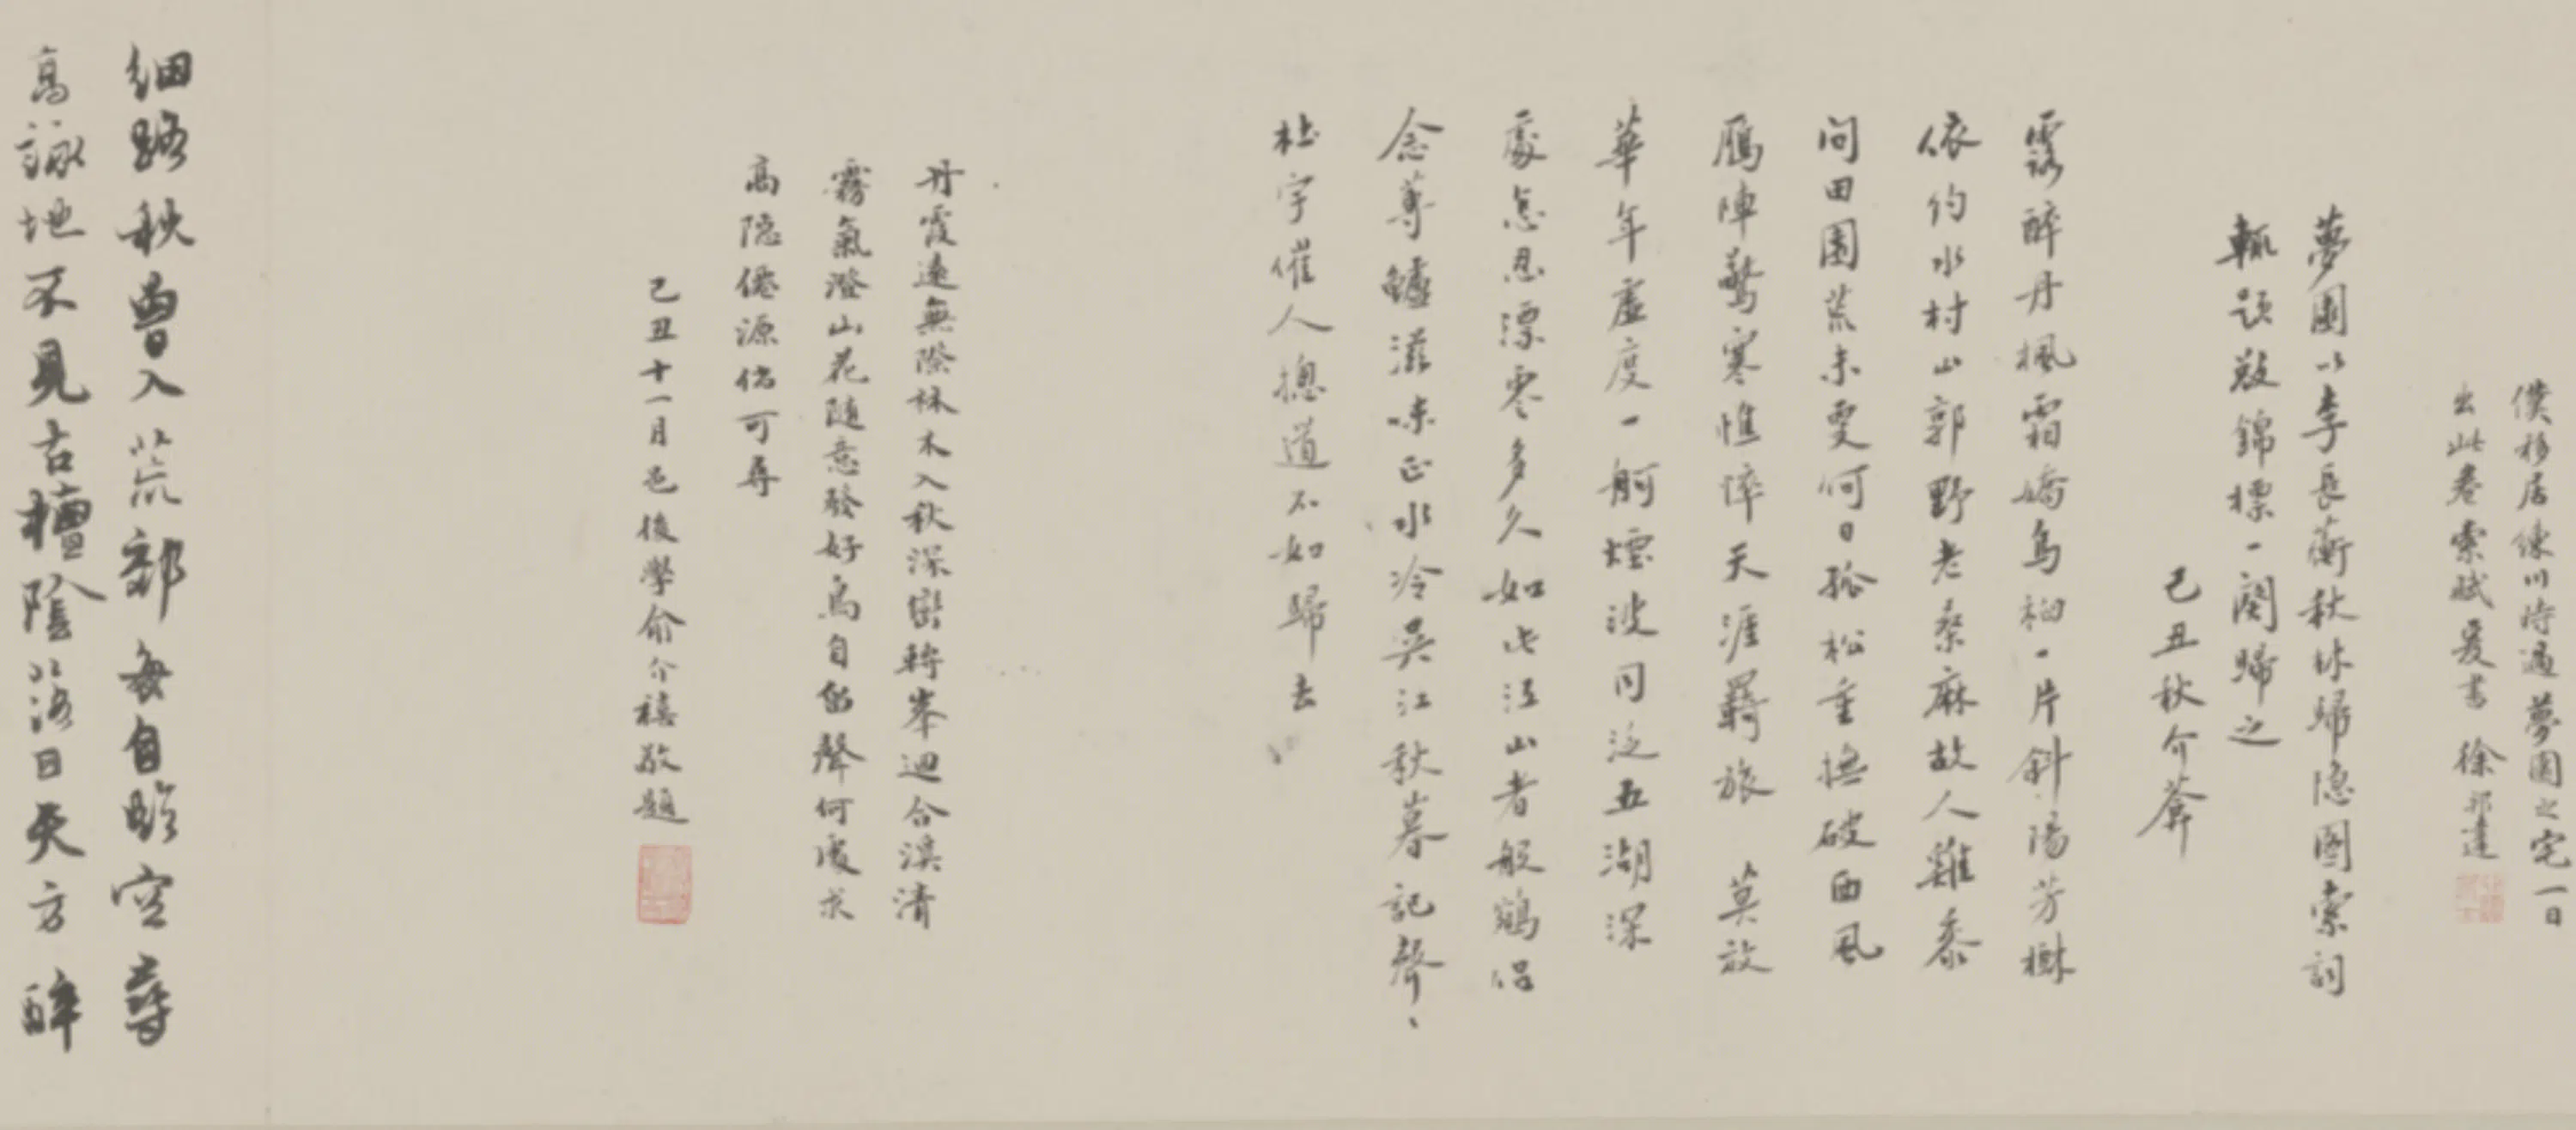 僕移居練川時過夢園之宅一日
出此卷索賦爰書 徐邦達
夢園以李長蘅秋林歸隱圖索詞
輒題殿錦標一闋歸之
己丑秋介菴
露醉丹楓霜嬌烏桕一片斜陽芳樹
依約水村山郭野老桑麻故人雞黍
問田園荒未更何日孤松重撫破西風
鴈陣驚寒憔悴天涯羈旅 莫放
華年虛度一舸煙波同泛五湖深
處怎忍漂零多久如此江山者般鷗侶
念蓴鱸滋味正水冷吳江秋暮記聲、
杜宇催人摠道不如歸去
丹霞遠無際林木入秋深巒轉峯迴合溪清
霧氣澄山花隨意發好鳥自留聲何處求
高隱僊源俗可尋
己丑十一月邑後學俞介禧敬題
細路秋曾入荒鄰每自盼空尊
高詠地不見古檀陰落日天方醉